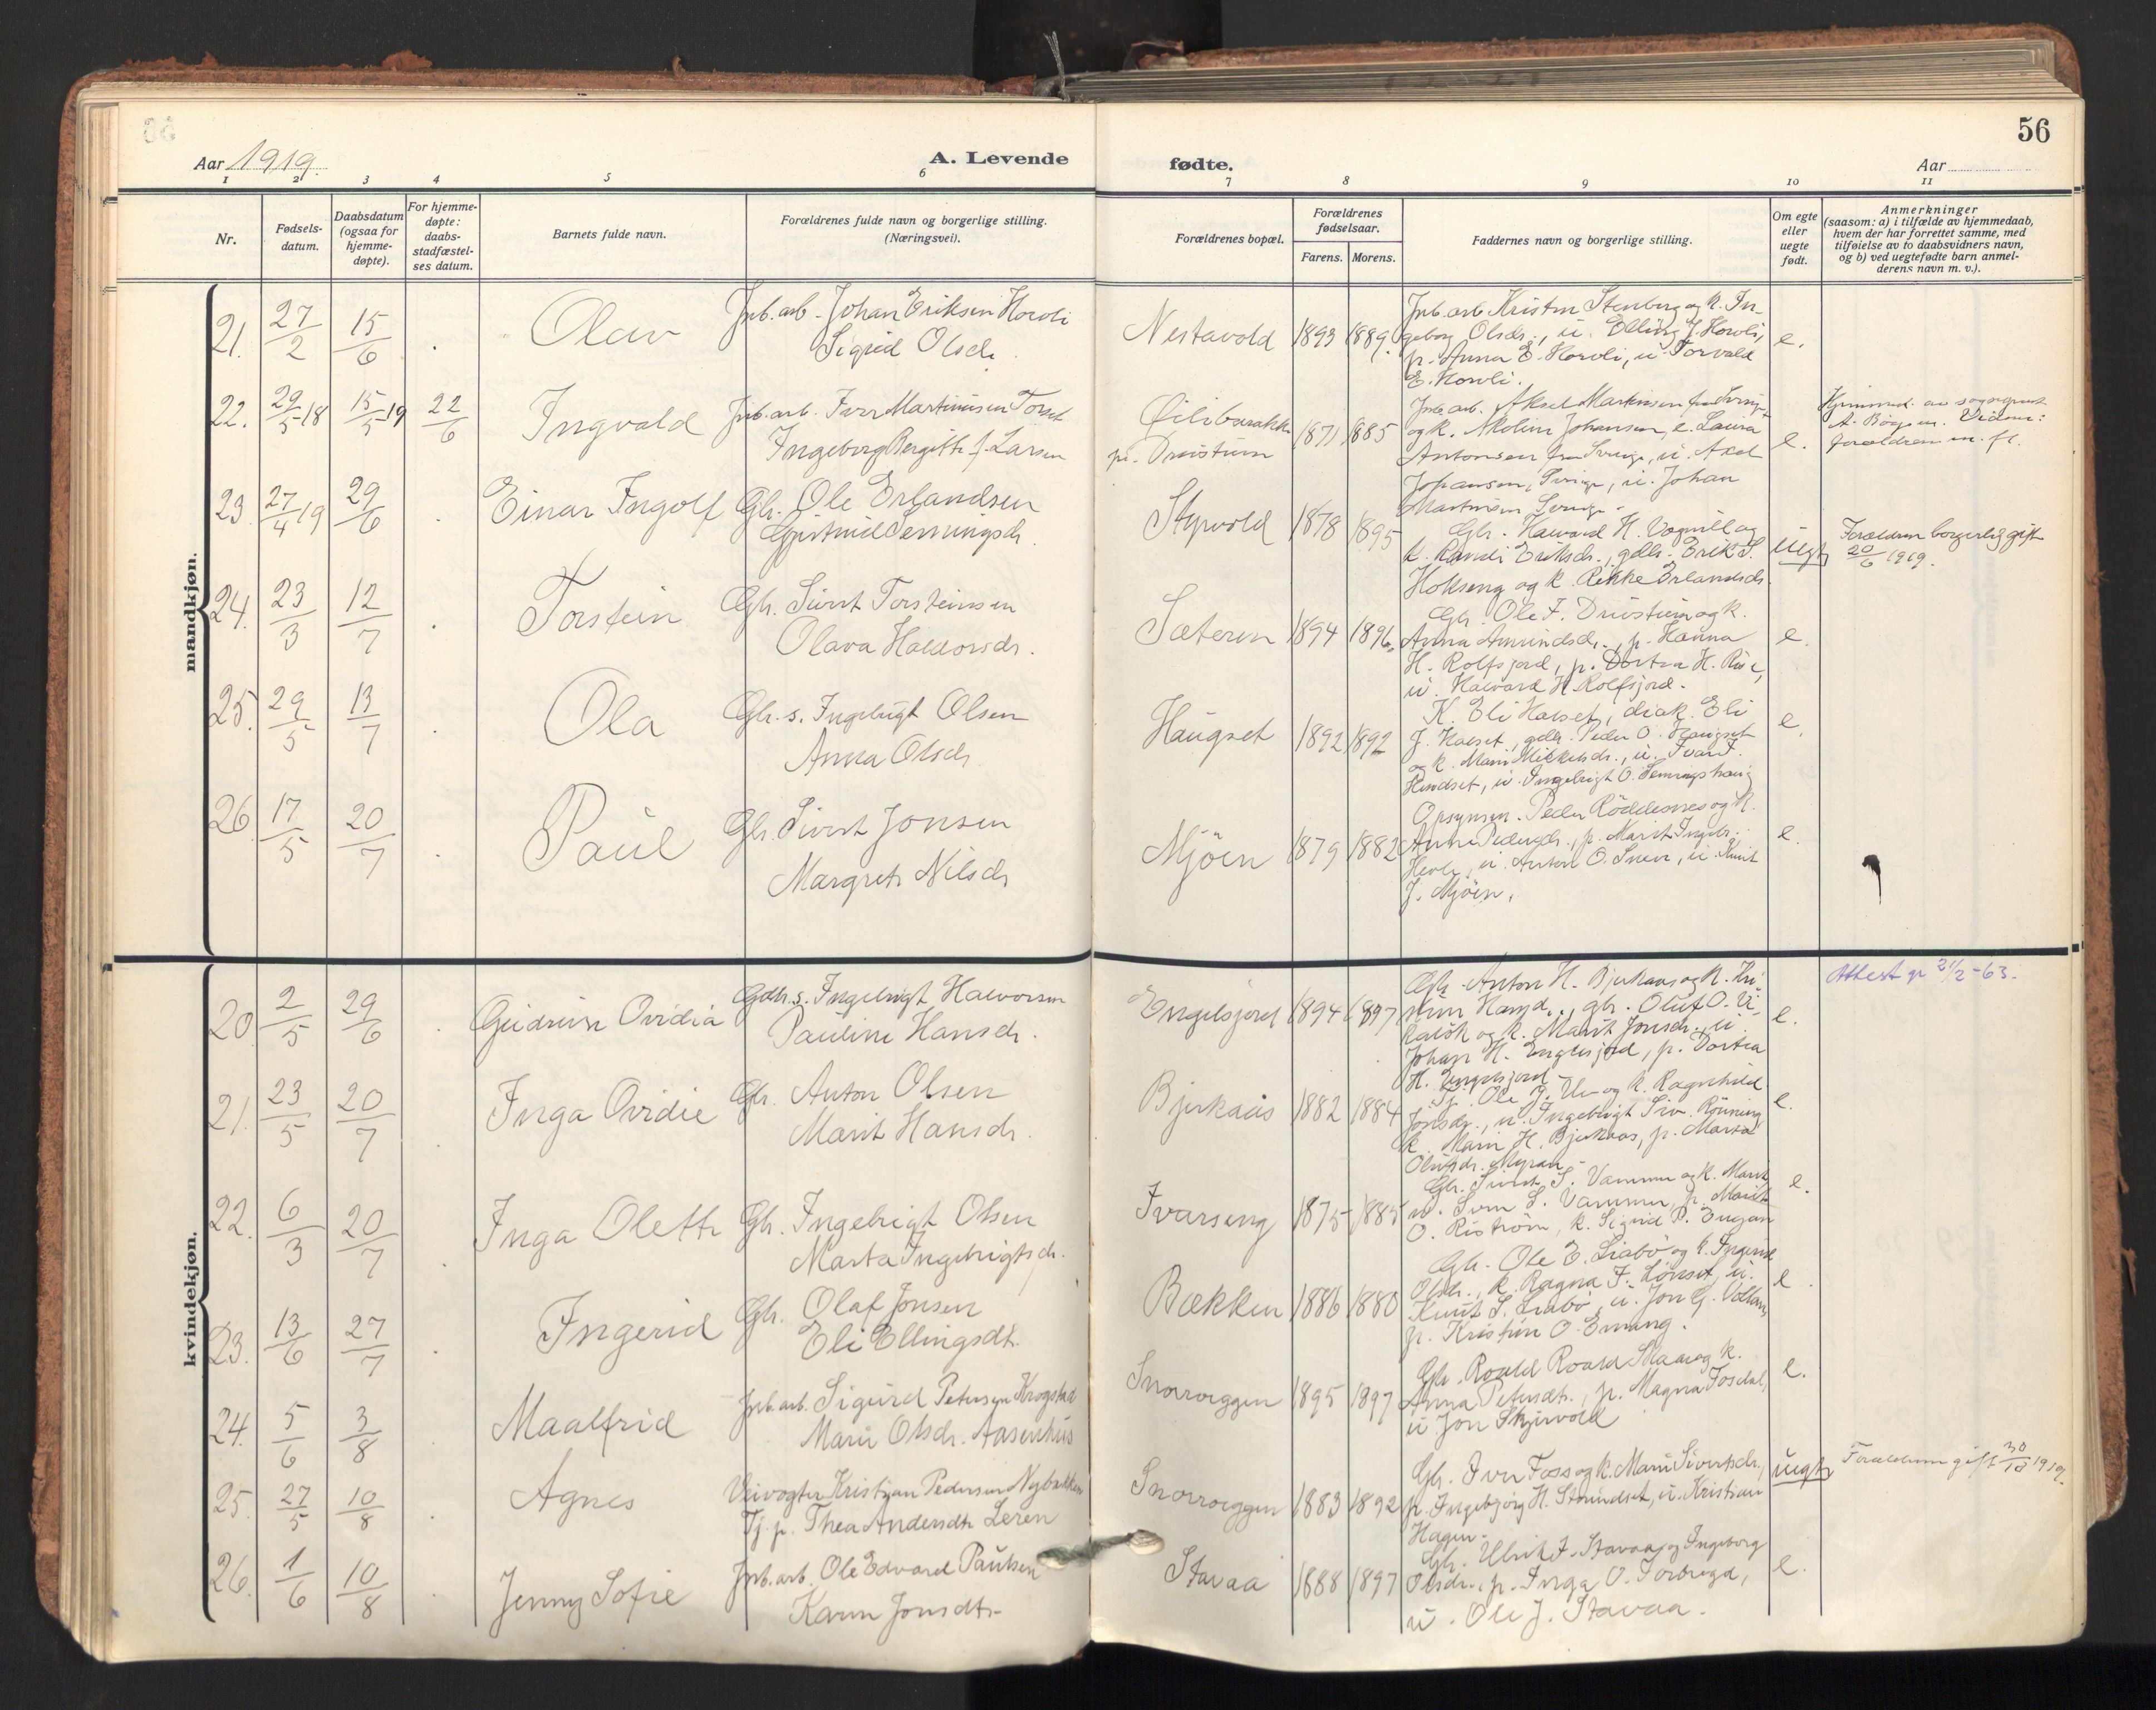 56
Aar 1919.
A. Levende
fødte.
Aar
1 2 3 4 5 6 7 8 9 10 11
Nr.
Fødsels-
datum.
Daabsdatum
(ogsaa for
hjemme-
døpte).
For hjemme-
døpte:
daabs-
stadfæstel-
ses datum.
Barnets fulde navn.
Forældrenes fulde navn og borgerlige stilling.
(Næringsvei).
Forældrenes bopæl.
Forældrenes
fødselsaar.
Farens. Morens.
Faddernes navn og borgerlige stilling.
Om egte
eller
uegte
født.
Anmerkninger
(saasom: a) i tilfælde av hjemmedaab,
hvem der har forrettet samme, med
tilføielse av to daabsvidners navn,
og b) ved uegtefødte barn anmel-
derens navn m. v.).
mandkjøn.
21. 27/2 15/6 Olav
Jnb.arb. Johan Eriksen Horvli
Sigrid Olsdr.
Nestavold 1893 1889.
Jnb. arb. Kristen Stenberg og k. In-
geborg Olsdr., u. Elling J. Horvli,
p. Anna E. Horvli, u. Torvald
E. Horvli.
e.
22. 29/5 18 15/5 19 22/6 Ingvald
Jnb. arb. Iver Martinusen
Ingeborg Bergitte J. Larsen
pr. Drivstuen 1871 1885
Jnb. arb. Aksel Martinsen fra Sverige
og k. Johansen, e. Laura
Antonsen fra Sverige, u. Axel
Johansen, Sverige, u. Johan
Martinsen Sverige.
e.
Vidner:
forældrene m. fl.
23. 27/4 19 29/6 Einar Ingolf
Gbr. Ole Erlandsen
Gjertrud Semmingsdr.
1878 1895
Gbr. Halvard H. Vognill og
k. Randi Eriksdr., gdbr. Erik S.
Hokseng og k. Rikke Erlandsdr.
uegte
Forældrene borgerlig gift
20/6 1919.
24. 23/3 12/7 Torstein
Gbr. Sivert Torsteinsen
Olava Haldorsdr.
Sæteren 1894 1896
Gbr. Ole I. Drivstuen og k.
Anna Amundsdr., p. Hanna
H. Rolfsjord, p. Dortea H. Rise,
u. Halvard H. Rolfsjord.
e.
25. 29/5 13/7 Ola
Gbr. s. Ingebrigt Olsen
Anna Olsdr.
Haugset 1892 1892
K. Eli Halset, diak. Eli
J. Halset, gdbr. Peder O. Haugset
og k. Marit Mikkelsdr., u. Ivar I.
Hindset, u. Ingebrigt O. Semingshaug
e.
26. 17/5 20/7 Paul
Gbr. Sivert Jonsen
Margrete Nilsdr
Mjöen 1879 1882
Opsynsm. Peder Röddesnes og k.
Anne Pedersdr., p. Marit Ingebr.
u. Anton O. Snøve, u. Knut
J. Mjöen.
e.
kvindekjøn.
20. 2/5 29/6 Gudrun Ovidia
Gdbr. s. Ingebrigt Halvorsen
Pauline Hansdr.
Engelsjord 1894 1897
Gbr. Anton H. Bjerkaas og k. Kri-
stine Hansd., gbr. Oluf O. U-
og k. Marit Jonsdr., u.
Johan H. Engelsjord, p. Dortea
H. Engelsjord
e.
Attest gr 21/2-63.
21. 23/5 20/7 Inga Ovidie
Gbr. Anton Olsen
Marit Hansdr.
Bjerkaas 1882 1884
Ole J. og k. Ragnhild
Jonsdr., u. Ingebrigt Siv. Rönning
k. Marie H. Bjerkaas, p. Marta
Olufsdr. Myran
e.
22. 6/3 20/7 Inga Olette
Gbr. Ingebrigt Olsen
Marta Ingebrigtsdr.
Ivarseng 1875 1885
Gbr. Sivert S. Vammer og k. Marit,
u. Sven S. Vammer, p. Marit
O. Riström, k. Sigrid P. Engan
e.
23. 13/6 27/7 Ingerid
Gbr. Olaf Jonsen
Eli Ellingsdt.
Bækken 1886 1880
Gbr. Ole E. Liabö og k. Ingerid
Olsdr., k. Ragna I. Lönset, u.
Knut S. Liabö, u. Jon G. Vollan,
p. Kristine O. Emang.
e.
24. 5/6 3/8 Maalfrid
Jnb.arb. Sigurd Petersen Krogstad
Marie Olsdr. Aasenhus
Snorroeggen 1895 1897
Gbr. Roald Roald Skaar og k.
Anna Petersdt., p. Magna Fosdal,
u. Jon Skjervold
e.
25. 27/5 10/8 Agnes
Veivogter Kristian Pedersen Nybakken
Tj. p. Thea Andersdt. Leren
Snorroeggen 1883 1892
Gbr. Iver Foss og k. Marie Sivertsdr.,
p. Ingebjørg H. Strandset, u. Kristian
Hagen.
uegte
Forældrene gift 30/10 1919.
26. 1/6 10/8 Jenny Sofie
Jnb. arb. Ole Edvard Paulsen
Karen Jonsdt.
Stavaa 1888 1897
Gbr. Ulrik I. Stavaa og Ingeborg
Olsdr., p. Inga O. Torbregd,
u. Ole J. Stavaa.
e.